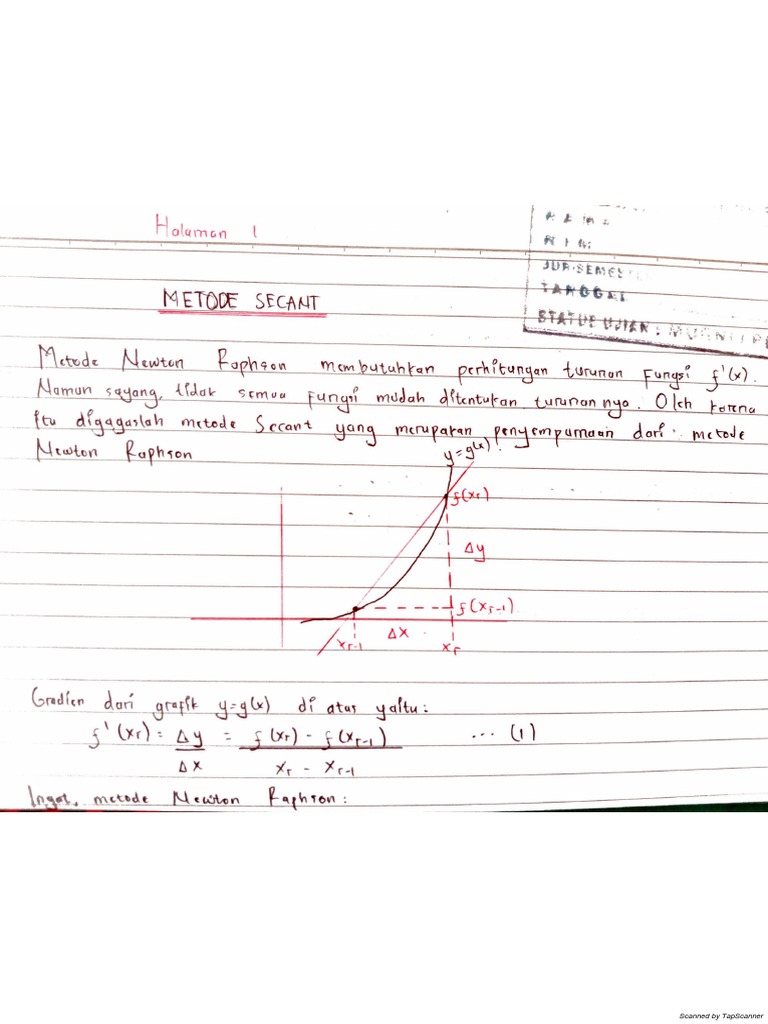 Halaman 1
N A M A
N I M
JUR.SEMES
TANGGAL
STATUS UJIAN :
METODE SECANT
Metode Newton Raphson membutuhkan perhitungan turunan fungsi f'(x).
Namun sayang, tidak semua fungsi mudah ditentukan turunannya. Oleh karena
itu digagaslah metode Secant yang merupakan penyempurnaan dari metode
Newton Raphson.
y=g(x)
f(xr)
Δy
f(xr-1)
Δx
xr-1
xr
Gradien dari grafik y=g(x) di atas yaitu:
f'(xr) = Δy/Δx = f(xr) - f(xr-1) / xr - xr-1 ... (1)
Ingat, metode Newton Raphson:
Scanned by TapScanner